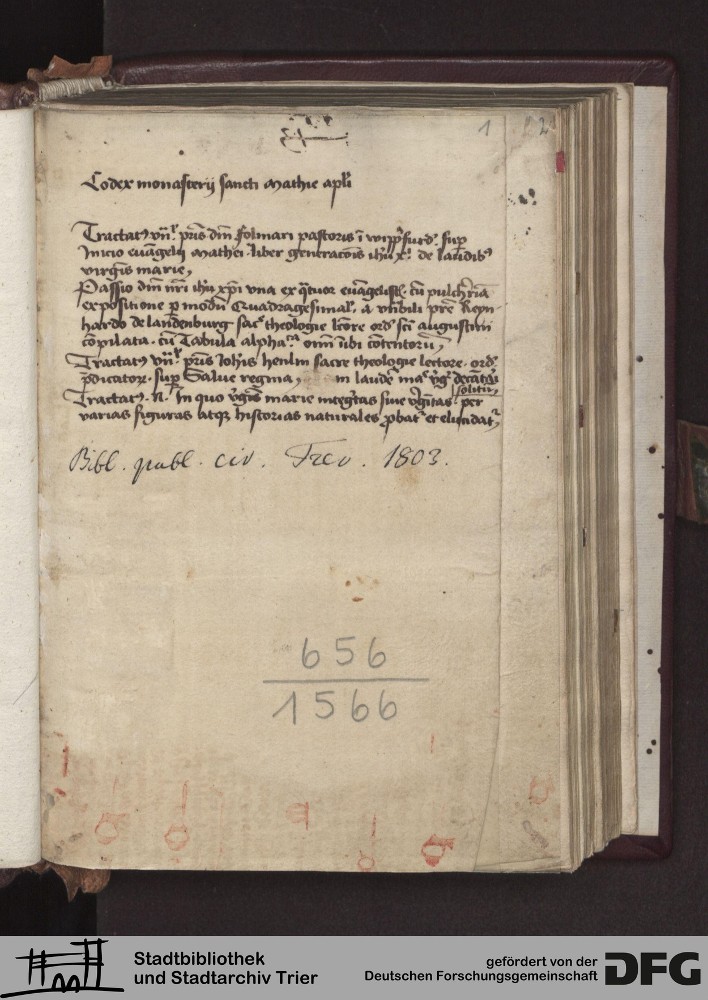 1 2
Codex monasterij sancti Mathie apli
Tractat9 vn̄. pr̄is dn̄i folmari pastoris ī sup
Inicio euāgelij Mathei. liber generacōis ihū xī. de laudib9
virgīs marie,
Passio dn̄i nr̄i ihū xp̄i vna ex q̄tuor euāgelist. cū pulch̄ria
expositione p̄ modū Quadragesimal. a vn̄bili pr̄e Reyn
hardo de laudenburg sac̄ theologie lc̄ore ord sc̄i augustini
cōpilata. cū Tabula alpha. om̄ ībi cōtentorū,
Tractat9 vn̄. pr̄is Ioh̄is henlin sacre theologie lectore. ord
p̄dicatoꝝ. sup Salue regina, in laudē
solitū
Tractat9. R. In quo v̄gīs marie inteḡtas siue v̄gītas. per
varias figuras atqꝫ historias naturales ꝓbat et elucidat
Bibl. publ. civ. Trev. 1803.
656
1566
Stadtbibliothek
und Stadtarchiv Trier
gefördert von der
Deutschen Forschungsgemeinschaft
DFG